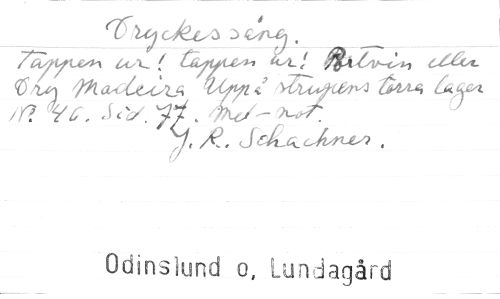 Dryckessång.
Tappen ur! tappen ur! Portvin eller
Dry Madeira Uppå strupens torra lager
No. 46. Sid. 77. Med-not.
J. R. Schachner.
Odinslund o, Lundagård